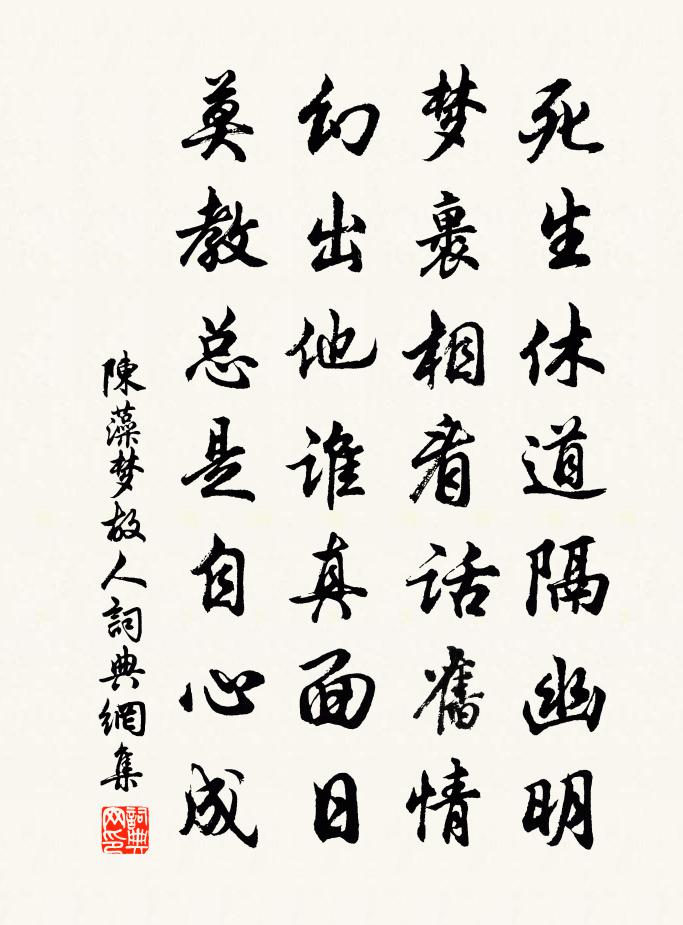 死生休道隔幽明
梦裏相看話舊情
幻出他誰真面目
莫教总是自心成
陳藻梦故人詞典網集
詞典网印